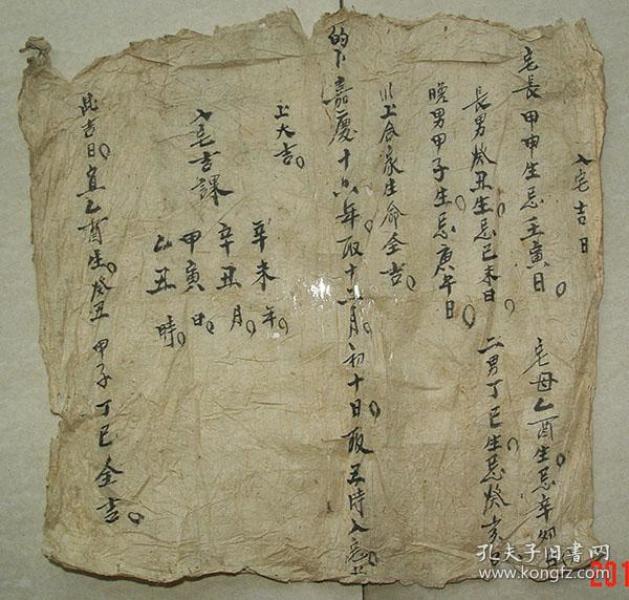 入宅吉日
宅長甲申生忌壬寅日 宅母乙酉生忌辛卯日
長男癸丑生忌己未日 二男丁巳生忌癸亥
晚男甲子生忌庚午日
以上合家生命全吉
的卜嘉慶十六年取十二月初十日取丑時入宅
上大吉
入宅吉課
辛未年
辛丑月
甲寅日
乙丑時
此吉日宜乙酉生癸丑甲子丁巳全吉
孔夫子旧书网
www.kongfz.com
201